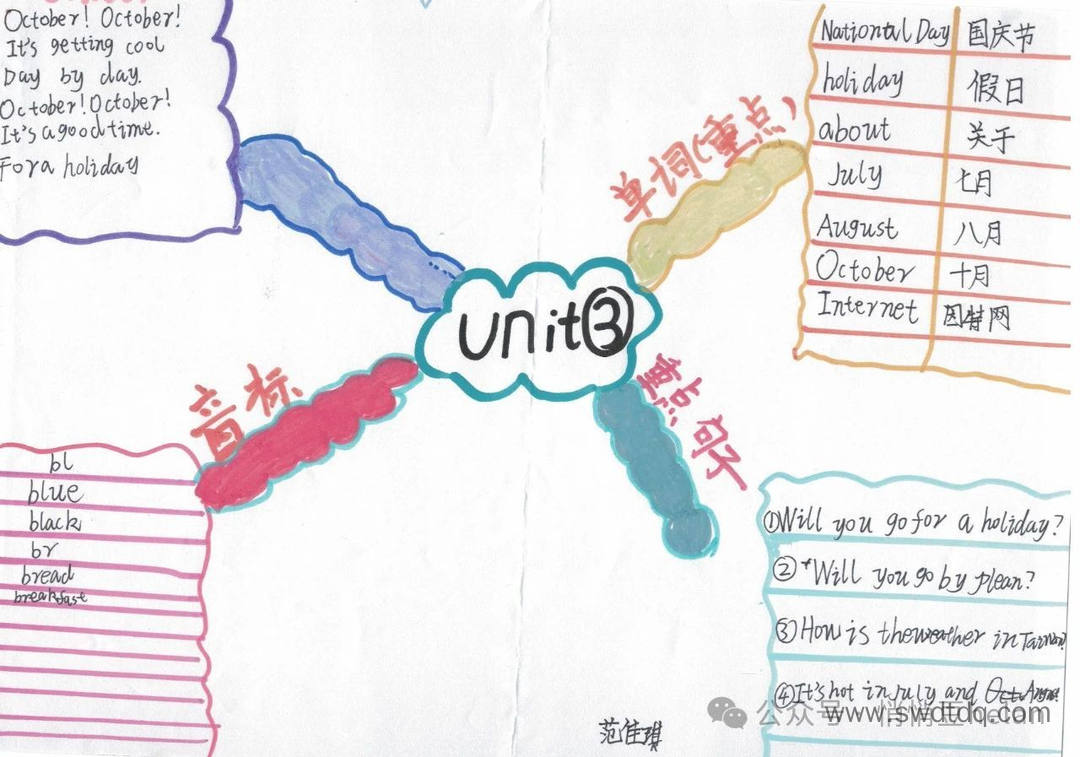 October! October!
It's getting cool
Day by day.
October! October!
It's a good time.
For a holiday
单词(重点)
Nationtal Day 国庆节
holiday 假日
about 关于
July 七月
August 八月
October 十月
Internet 因特网
Unit③
音标
bl
blue
black
br
bread
breakfast
重点句子
①Will you go for a holiday?
②*Will you go by plean?
③How is the weather in
④It's hot in july and
范佳琪
公众号
www.swdtdq.com